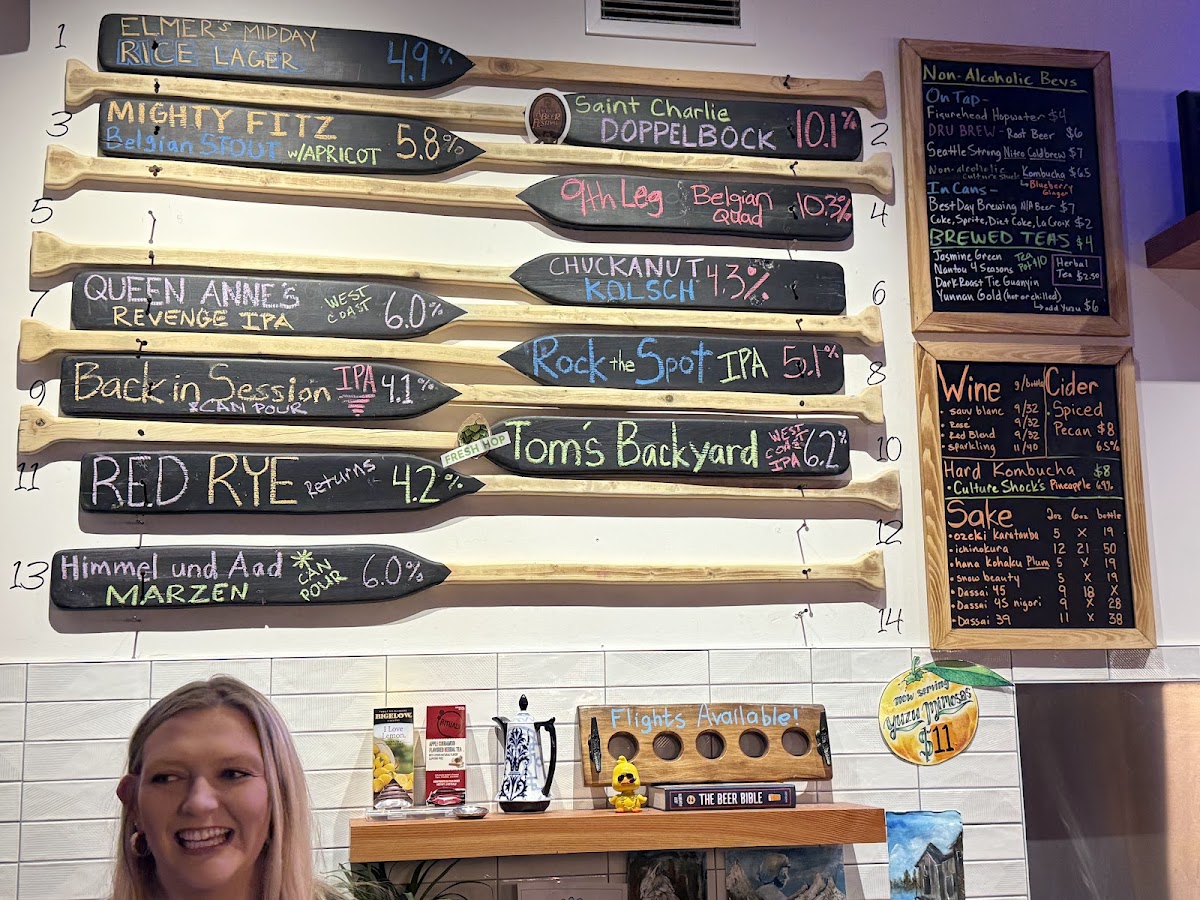 1
ELMER'S MIDDAY
RICE LAGER 4.9%
2
Saint Charlie
DOPPELBOCK 10.1%
3
MIGHTY FITZ
Belgian STOUT w/APRICOT 5.8%
4
9th Leg Belgian Quad 10.3%
5
6
CHUCKANUT
KOLSCH 4.3%
7
QUEEN ANNE'S
REVENGE IPA WEST COAST 6.0%
8
Rock the Spot IPA 5.1%
9
Back in Session IPA 4.1%
*CAN POUR
10
FRESH HOP
Tom's Backyard WEST COAST IPA 6.2%
11
RED RYE Returns 4.2%
12
13
Himmel und Aad
MARZEN *CAN POUR 6.0%
14
Non-Alcoholic Bevs
On Tap-
Figurehead Hopwater $4
DRU BREW - Root Beer $6
Seattle Strong Nitro Coldbrew $7
Non-alcoholic
Culture Shock Kombucha $6.5
Blueberry Ginger
In Cans-
Best Day Brewing N/A Beer $7
Coke, Sprite, Diet Coke, La Croix $2
BREWED TEAS $4
Jasmine Green
Nantou 4 Seasons
Dark Roast Tie Guanyin
Yunnan Gold (hot or chilled)
Tea Pot $10
Herbal Tea $2.50
add Yuzu $6
Wine g/bottle
• sauv blanc 9/32
• Rose 9/32
• Red Blend 9/32
• sparkling 11/40
Cider
• Spiced
Pecan $8
6.5%
Hard Kombucha $8
• Culture Shock's Pineapple 6.9%
Sake 2oz 6oz bottle
• ozeki karatamba 5 X 19
• ichinokura 12 21 50
• hana kohaku Plum 5 X 19
• snow beauty 5 X 19
• Dassai 45 9 18 X
• Dassai 45 nigori 9 X 28
• Dassai 39 11 X 38
now serving
yuzu mimosas
$11
Flights Available!
BIGELOW
I Love Lemon
RITUALS
APPLE CINNAMON
FLAVORED HERBAL TEA
THE BEER BIBLE